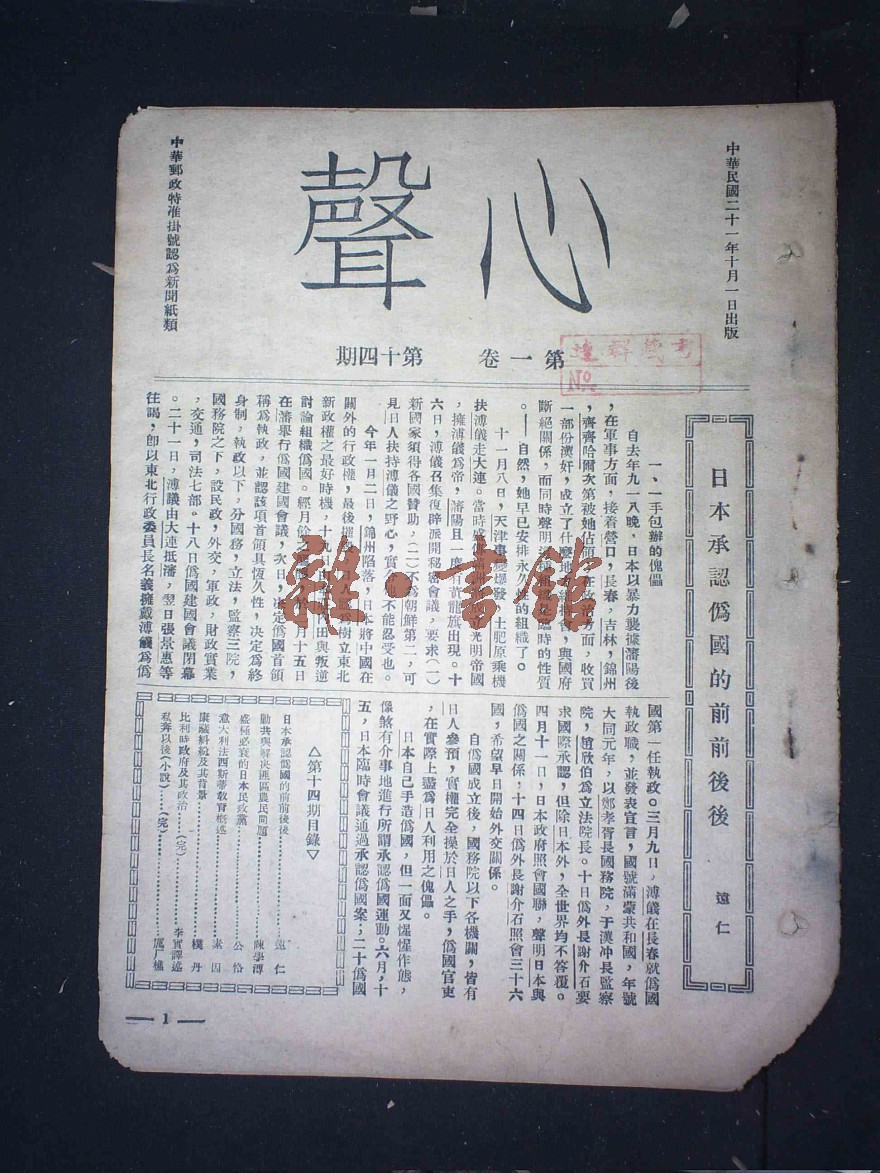 中華民國二十一年十月一日出版
心聲
第一卷 第十四期
中華郵政特准掛號認為新聞紙類
日本承認偽國的前前後後 遠仁
一、一手包辦的傀儡
自去年九一八晚，日本以暴力襲據瀋陽後
，在軍事方面，接着營口，長春，吉林，錦州
，齊齊哈爾次第被她佔領
方面，收買
一部份漢奸，成立了什麼地方
，與國府
斷絕關係，而同時聲明
臨時的性質
。——自然，她早已安排永久性的組織了。
十一月八日，天津事變爆發，土肥原乘機
扶溥儀走大連。當時盛
光明帝國
，擁溥儀為帝，瀋陽且一度有黃龍旗出現。十
六日，溥儀召集復辟派開秘密會議，要求（一）
新國家須得各國贊助，（二）不為朝鮮第二，可
見日人扶持溥儀之野心，實
不能忍受也。
今年一月二日，錦州陷落，日本將中國在
關外的行政權，最後摧
為樹立東北
新政權之最好時機，十九日
田與叛逆
討論組織偽國。經月餘之
月十五日
在瀋舉行偽國建國會議，次日，決定偽國首領
稱為執政，並認該項首領具恆久性，決定為終
身制，執政以下，分國務，立法，監察三院，
國務院之下，設民政，外交，軍政，財政實業
，交通，司法七部。十八日偽國建國會議閉幕
。二十一日，溥儀由大連抵瀋，翌日張景惠等
往謁，即以東北行政委員長名義擁戴溥儀為偽
國第一任執政。三月九日，溥儀在長春就偽國
執政職，並發表宣言，國號滿蒙共和國，年號
大同元年，以鄭孝胥長國務院，于漢冲長監察
院，趙欣伯為立法院長。十日偽外長謝介石要
求國際承認，但除日本外，全世界均不答覆。
四月十一日，日本政府照會國聯，聲明日本與
偽國之關係；十四日偽外長謝介石照會三十六
國，希望早日開始外交關係。
自偽國成立後，國務院以下各機關，皆有
日人參預，實權完全操於日人之手，偽國官吏
，在實際上盡為日人利用之傀儡。
日本自己手造偽國，但一面又惺惺作態，
像煞有介事地進行所謂承認偽國運動。六月，十
五，日本臨時會議通過承認偽國案；二十偽國
△第十四期目錄▽
日本承認偽國的前前後後…………遠仁
勦共與解決匪區農民問題…………陳學潭
盛極必衰的日本民政黨…………公恪
意大利法西斯蒂教育概述…………素因
康藏糾紛及其背景…………樸丹
比利時政府及其政治……（完）……李實譯述
私奔以後（小說）……（完）
— 1 —
No
雜·書館